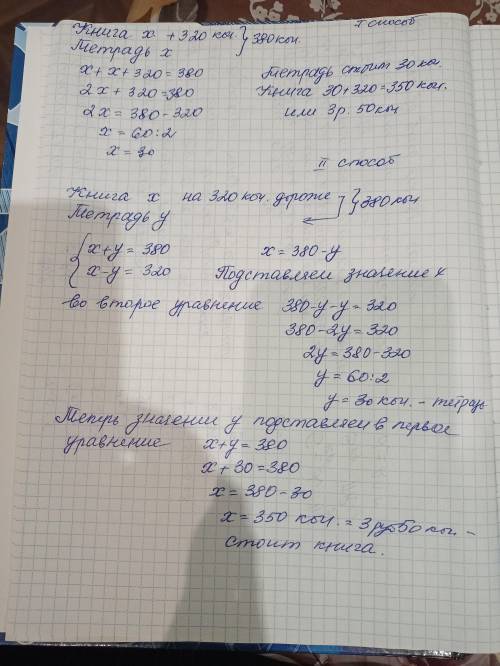 I способ
Книга х + 320 коп. } 380 коп.
Тетрадь х
х + х + 320 = 380
2х + 320 = 380
2х = 380 - 320
х = 60 : 2
х = 30
Тетрадь стоит 30 коп.
Книга 30 + 320 = 350 коп.
или 3 р. 50 коп
II способ
Книга х на 320 коп. дороже } 380 коп
Тетрадь у
{ х + у = 380
х - у = 320
х = 380 - у
Подставляем значение х
во второе уравнение 380 - у - у = 320
380 - 2у = 320
2у = 380 - 320
у = 60 : 2
у = 30 коп. - тетрадь
Теперь значении у подставляем в первое
уравнение х + у = 380
х + 30 = 380
х = 380 - 30
х = 350 коп. = 3 руб 50 коп. -
стоит книга.